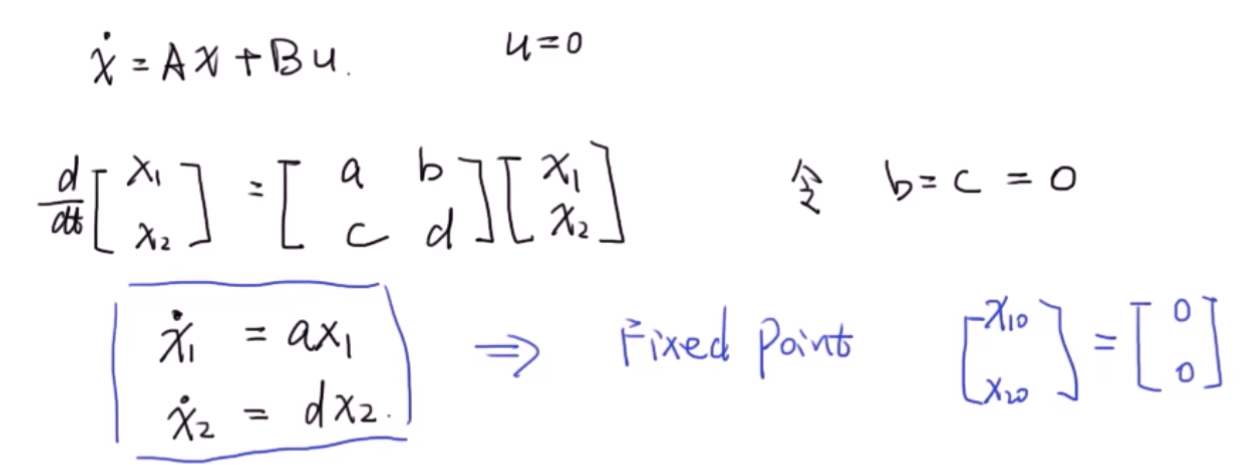 ẋ = Ax + Bu. u=0
d/dt [x₁ x₂] = [a b c d] [x₁ x₂] 令 b = c = 0
ẋ₁ = ax₁
ẋ₂ = dx₂.
⇒ Fixed Point [x₁₀ x₂₀] = [0 0]